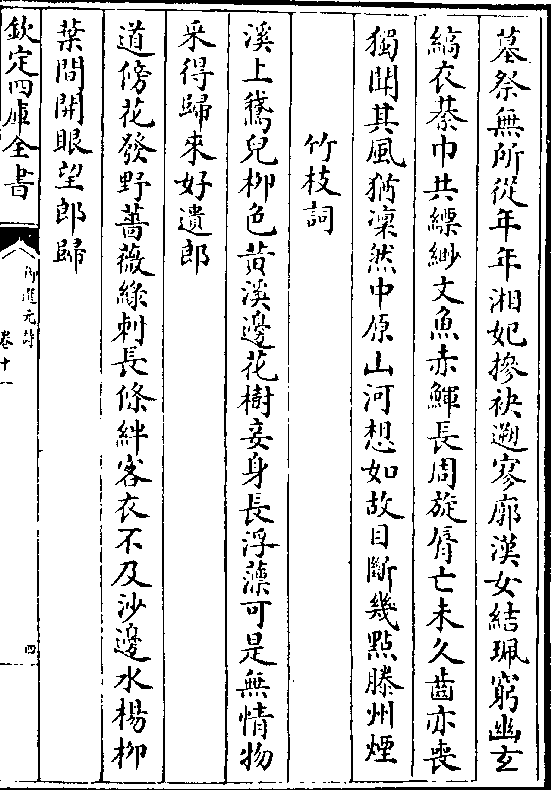 墓祭無所從年年湘妃摻袂遡寥廓漢女結珮窮幽玄
縞衣綦巾共縹緲文魚赤鯶長周旋脣亡未久齒亦喪
獨聞其風猶凜然中原山河想如故目斷幾點滕州煙
竹枝詞
溪上鵞兒柳色黄溪邊花樹妾身長浮藻可是無情物
采得歸來好遺郎
道傍花發野薔薇緑刺長條絆客衣不及沙邊水楊柳
葉間開眼望郎歸
欽定四庫全書
御選元詩
卷十一
四